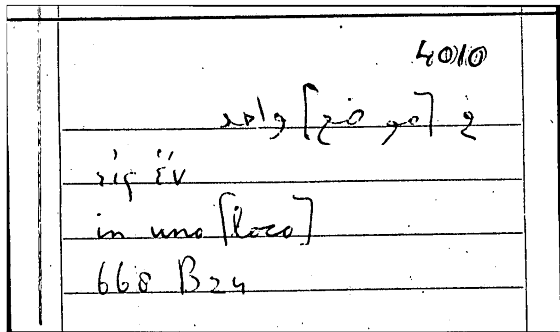 4010
في [موضع] واحد
εἰς ἕν
in uno [loco]
668 B24